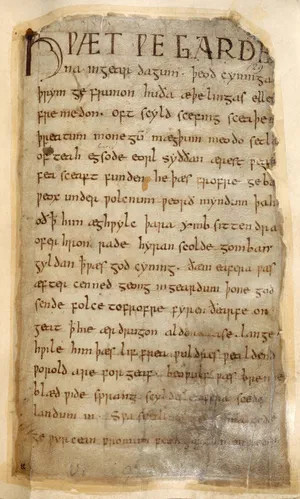 HǷÆT ǷE GARDE
na ingear dagum. þeod cyninga
þrym ge frunon huða æþelingas elle
fremedon. oft scyld scefing sceaþe
þreatum monegū mægþum meodo setla
of teah egsode eorl syððan ærest ƿear
fea sceaft funden he þæs frofre geba
ƿeox under ƿolcnum ƿeorð myndum þah
oð ꝥ him æghƿylc þara ymb sittendra
ofer hron rade hyran scolde gomban
gyldan ꝥ ƿæs god cyning. ðæm eafera ƿæs
æfter cenned geong ingeardum þone god
sende folce tofrofre fyren ðearfe on
geat ꝥ hie ær drugon aldor ase. lange
hƿile him þæs lif frea ƿuldres ƿealdend
ƿorold are for geaf. beoƿulf ƿæs breme
blæd ƿide sprang scyldes eafera scede
landum in. Sƿa sceal
ge ƿyrcean fromum